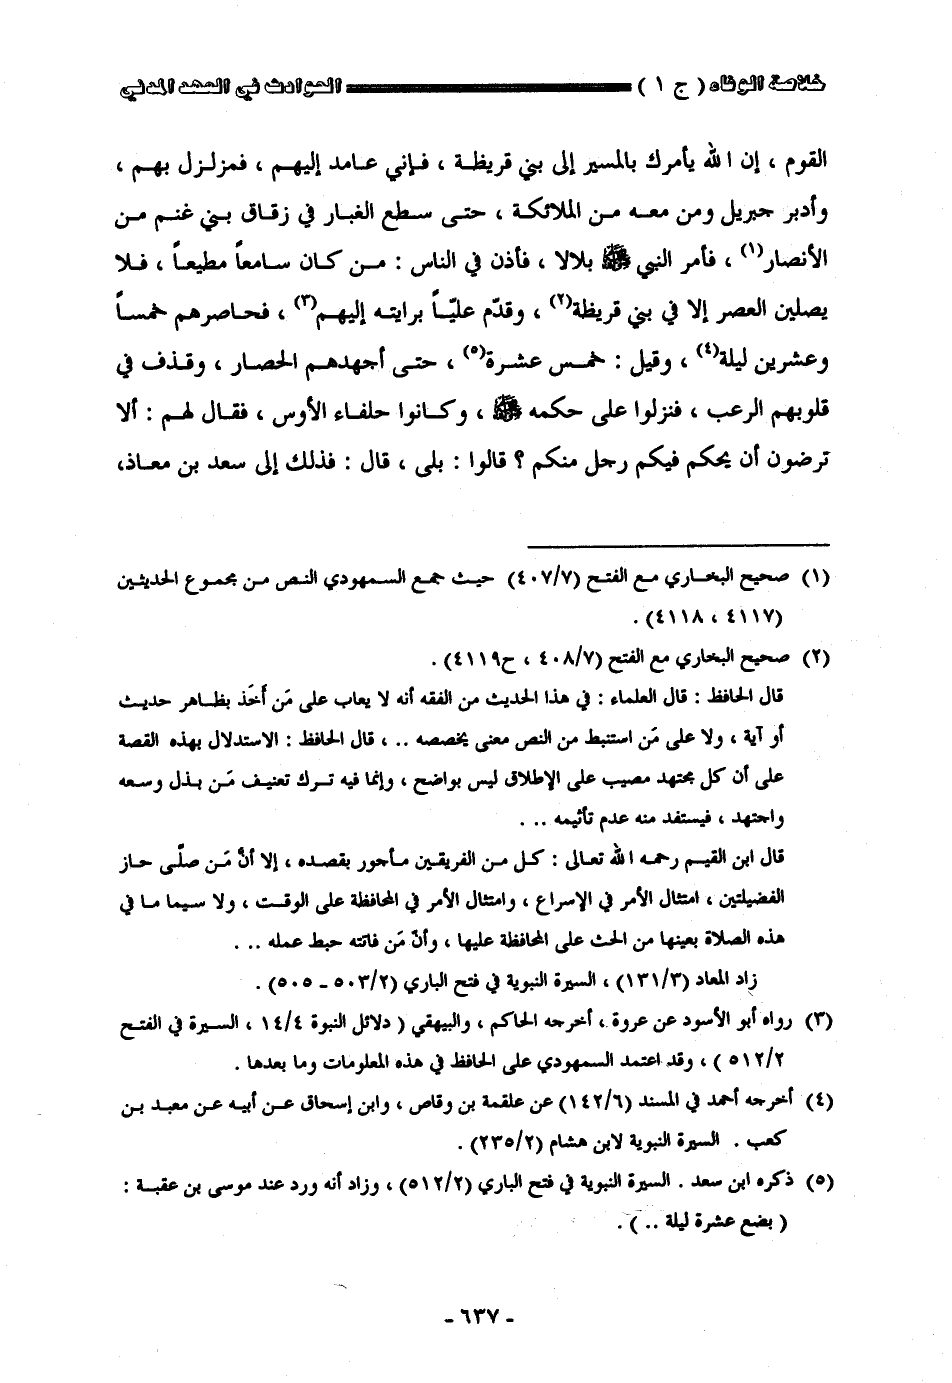 خلاصة الوفاء ( ج ١ ) الحوادث في العهد المدني
القوم ، إن الله يأمرك بالمسير إلى بني قريظة ، فإني عامد إليهم ، فمزلزل بهم ،
وأدبر جبريل ومن معه من الملائكة ، حتى سطع الغبار في زقاق بني غنم من
الأنصار(١) ، فأمر النبي ﷺ بلالا ، فأذن في الناس : من كان سامعاً مطيعاً ، فلا
يصلين العصر إلا في بني قريظة(٢) ، وقدّم عليّاً برايته إليهم(٣) ، فحاصرهم خمساً
وعشرين ليلة(٤) ، وقيل : خمس عشرة(٥) ، حتى أجهدهم الحصار ، وقذف في
قلوبهم الرعب ، فنزلوا على حكمه ﷺ ، وكانوا حلفاء الأوس ، فقال لهم : ألا
ترضون أن يحكم فيكم رجل منكم ؟ قالوا : بلى ، قال : فذلك إلى سعد بن معاذ،
(١) صحيح البخاري مع الفتح (٤٠٧/٧) حيث جمع السمهودي النص من مجموع الحديثين
(٤١١٧ ، ٤١١٨) .
(٢) صحيح البخاري مع الفتح (٤٠٨/٧ ، ح٤١١٩) .
قال الحافظ : قال العلماء : في هذا الحديث من الفقه أنه لا يعاب على مَن أخَذ بظاهر حديث
أو آية ، ولا على مَن استنبط من النص معنى يخصصه .. ، قال الحافظ : الاستدلال بهذه القصة
على أن كل مجتهد مصيب على الإطلاق ليس بواضح ، وإنما فيه ترك تعنيف مَن بذل وسعه
واجتهد ، فيستفد منه عدم تأثيمه .. .
قال ابن القيم رحمه الله تعالى : كل من الفريقين مأجور بقصده ، إلا أنَّ مَن صلَّى حاز
الفضيلتين ، امتثال الأمر في الإسراع ، وامتثال الأمر في المحافظة على الوقت ، ولا سيما ما في
هذه الصلاة بعينها من الحث على المحافظة عليها ، وأنّ مَن فاتته حبط عمله .. .
زاد المعاد (١٣١/٣) ، السيرة النبوية في فتح الباري (٥٠٣/٢ ـ ٥٠٥) .
(٣) رواه أبو الأسود عن عروة ، أخرجه الحاكم ، والبيهقي ( دلائل النبوة ١٤/٤ ، السيرة في الفتح
٥١٢/٢ ) ، وقد اعتمد السمهودي على الحافظ في هذه المعلومات وما بعدها .
(٤) أخرجه أحمد في المسند (١٤٢/٦) عن علقمة بن وقاص ، وابن إسحاق عن أبيه عن معبد بن
كعب . السيرة النبوية لابن هشام (٢٣٥/٢) .
(٥) ذكره ابن سعد . السيرة النبوية في فتح الباري (٥١٢/٢) ، وزاد أنه ورد عند موسى بن عقبة :
( بضع عشرة ليلة .. ) .
- ٦٣٧ -